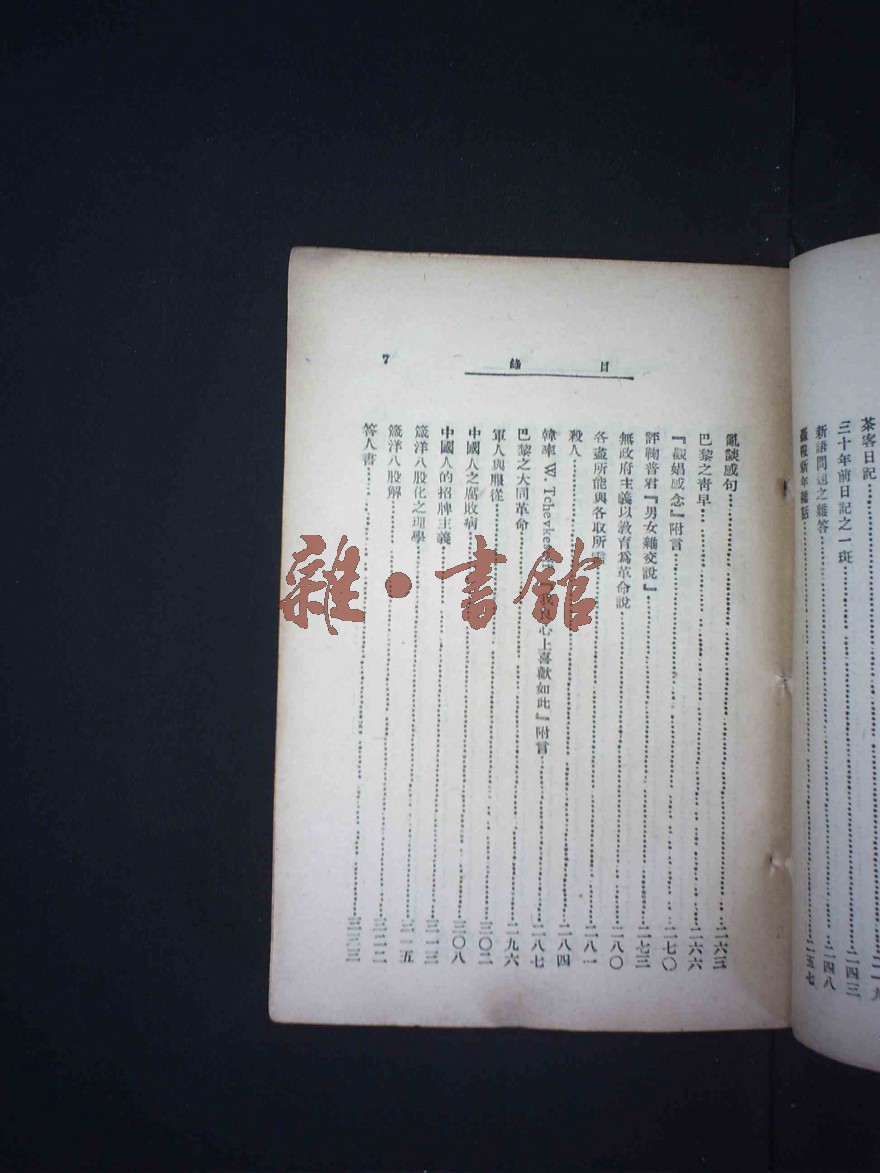 茶客日記……二一九
三十年前日記之一斑……二四三
新語問題之雜答……二四八
新年雜話……二五七
目錄
7
亂談感句……二六三
巴黎之靑早……二六六
『觀娼感念』附言……二七〇
評鞠普君『男女雜交說』……二七三
無政府主義以敎育爲革命說……二八〇
各盡所能與各取所需……二八一
殺人……二八四
韓率 W. Tchevke 心上喜歡如此』附言……二八七
巴黎之大同革命……二九六
軍人與服從……三〇二
中國人之腐敗病……三〇八
中國人的招牌主義……三一三
箴洋八股化之理學……三一五
箴洋八股解……三二二
答人書……三三三
雜·書館